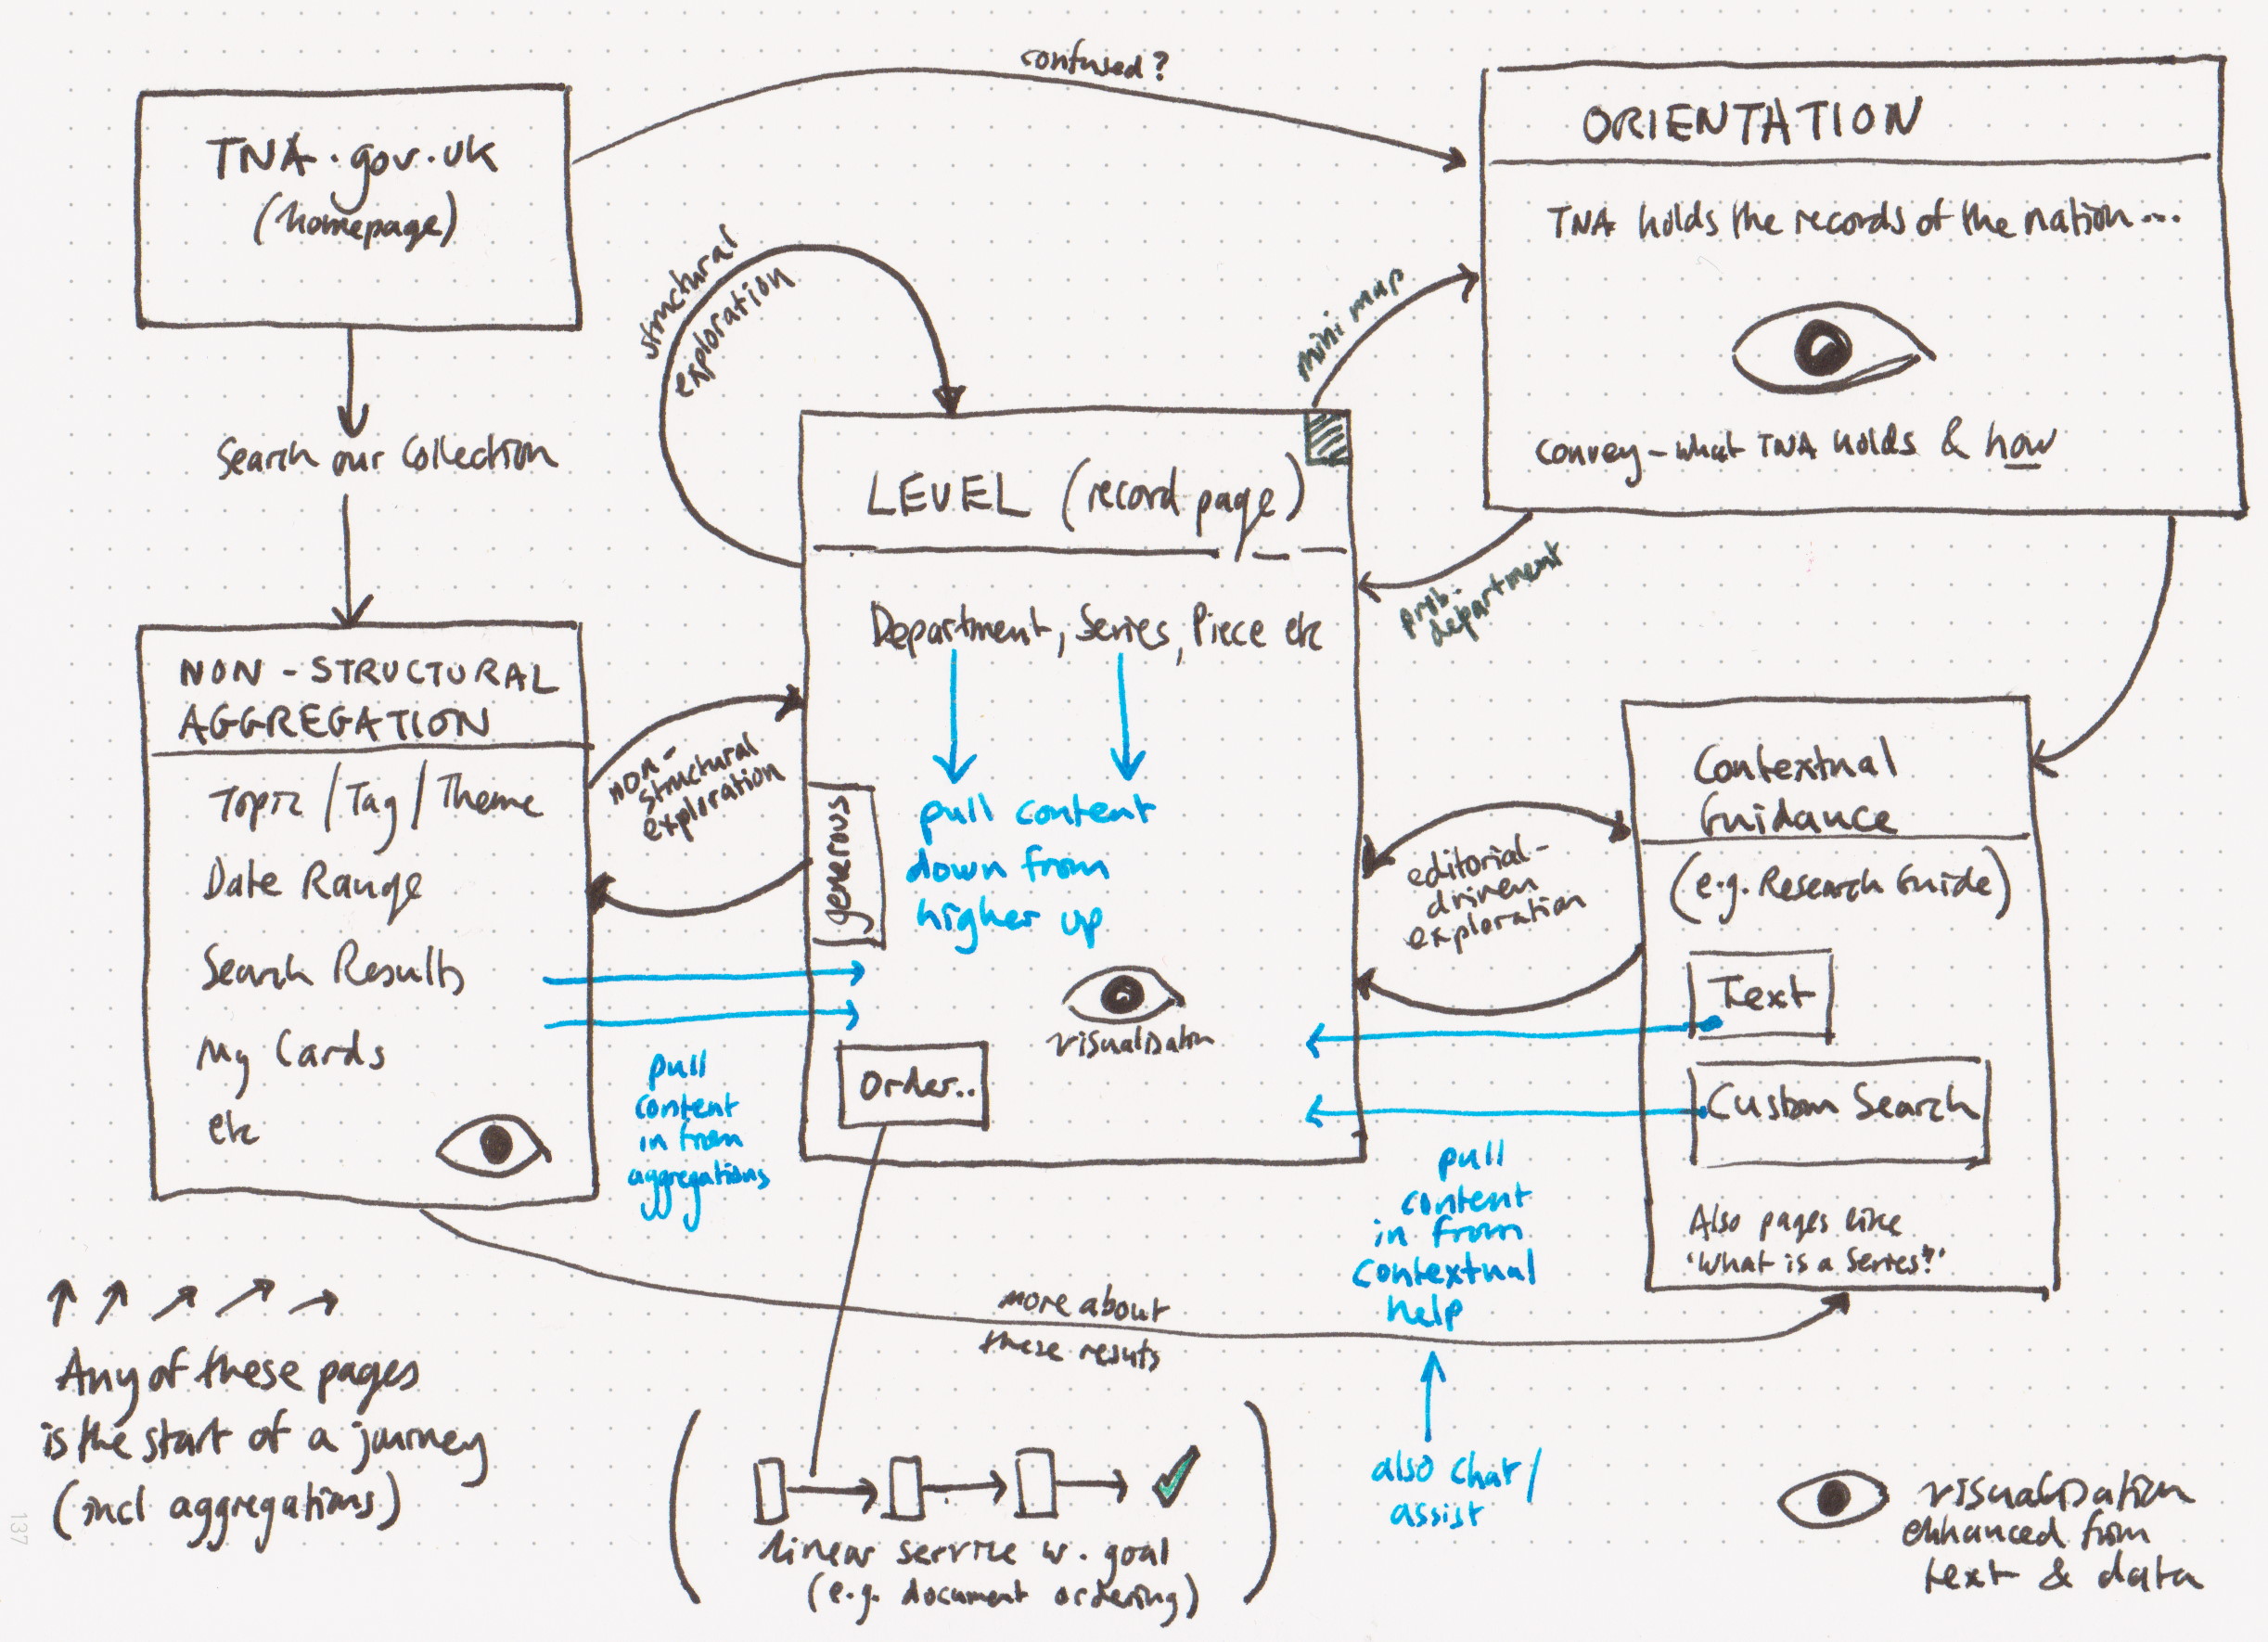 confused?
TNA.gov.uk
(homepage)
ORIENTATION
TNA holds the records of the nation...
Convey - what TNA holds & how
structural
exploration
mini map
Search our Collection
LEVEL (record page)
Department, Series, Piece etc
prob.
department
NON-STRUCTURAL
AGGREGATION
Topic / Tag / Theme
Date Range
Search Results
My Cards
etc
non-
structural
exploration
generous
pull content
down from
higher up
visualisation
Order..
pull
content
in from
aggregations
editorial-
driven
exploration
Contextual
Guidance
(e.g. Research Guide)
Text
Custom Search
Also pages like
'What is a Series?'
pull
content
in from
contextual
help
more about
these resuts
also chat/
assist
Any of these pages
is the start of a journey
(incl aggregations)
linear service w. goal
(e.g. document ordering)
visualisation
enhanced from
text & data
137